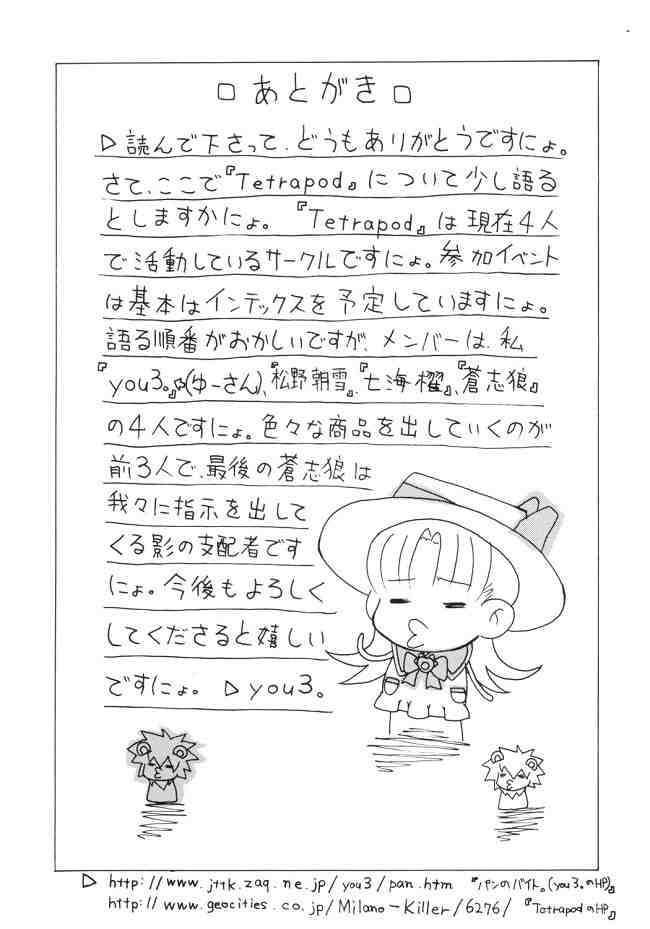 □ あとがき □
▷読んで下さって、どうもありがとうですにょ。
さて、ここで『Tetrapod』について少し語る
としますかにょ。『Tetrapod』は現在4人
で活動しているサークルですにょ。参加イベント
は基本はインテックスを予定していますにょ。
語る順番がおかしいですが、メンバーは、私
『you3。』(ゆーさん)、『松野朝雪』、『七海櫂』、『蒼志狼』
の4人ですにょ。色々な商品を出していくのが
前3人で、最後の蒼志狼は
我々に指示を出して
くる影の支配者です
にょ。今後もよろしく
してくださると嬉しい
ですにょ。 ▷you3。
▷ http://www.jttk.zaq.ne.jp/you3/pan.htm 『パンのバイト。(you3。のHP)』
http://www.geocities.co.jp/Milano-Killer/6276/ 『TetrapodのHP』